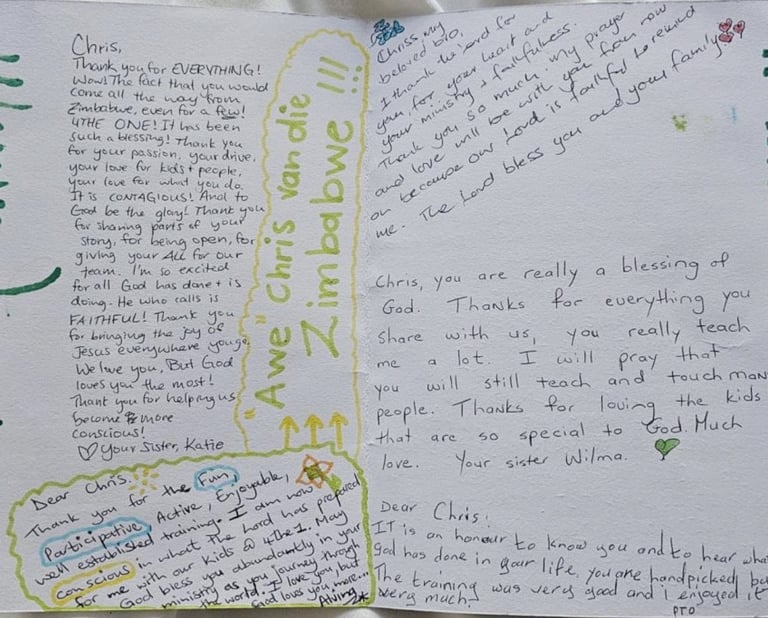 Chris,
Thank you for EVERYTHING!
Wow! The fact that you would
come all the way from
Zimbabwe, even for a few!
4THE ONE! It has been
such a blessing! Thank you
for your passion, your drive,
your love for kids + people,
your love for what you do.
It is CONTAGIOUS! And to
God be the glory! Thank you
for sharing parts of your
story, for being open, for
giving your ALL for our
team. I'm so excited
for all God has done + is
doing. He who calls is
FAITHFUL! Thank you
for bringing the joy of
Jesus everywhere you go.
We love you, But God
loves you the most!
Thank you for helping us
become more
conscious!
♡ Your Sister, Katie
"Awe" Chris van die
Zimbabwe !!!
Dear Chris.
Thank you for the Fun,
Participative, Active, Enjoyable,
well established training. I am now
conscious in what The Lord has prepared
for me with our Kids @ 4the1. May
God bless you abundantly in your
ministry as you journey through
the world. I love you, but
God loves you more...
Chriss my
beloved bro,
I thank the Lord for
you, for your heart and
your ministry + faithfulness.
Thank you so much. My prayer
and love will be with you from now
on because our Lord is faithful to remind
me. The Lord bless you and your family
Chris, you are really a blessing of
God. Thanks for everything you
share with us, you really teach
me a lot. I will pray that
you will still teach and touch many
people. Thanks for loving the kids
that are so special to God. Much
love. Your sister Wilma.
Dear Chris.
IT is an honour to know you and to hear what
god has done in your life, you are handpicked by
The training was very good and i enjoyed it
very much.
PTO